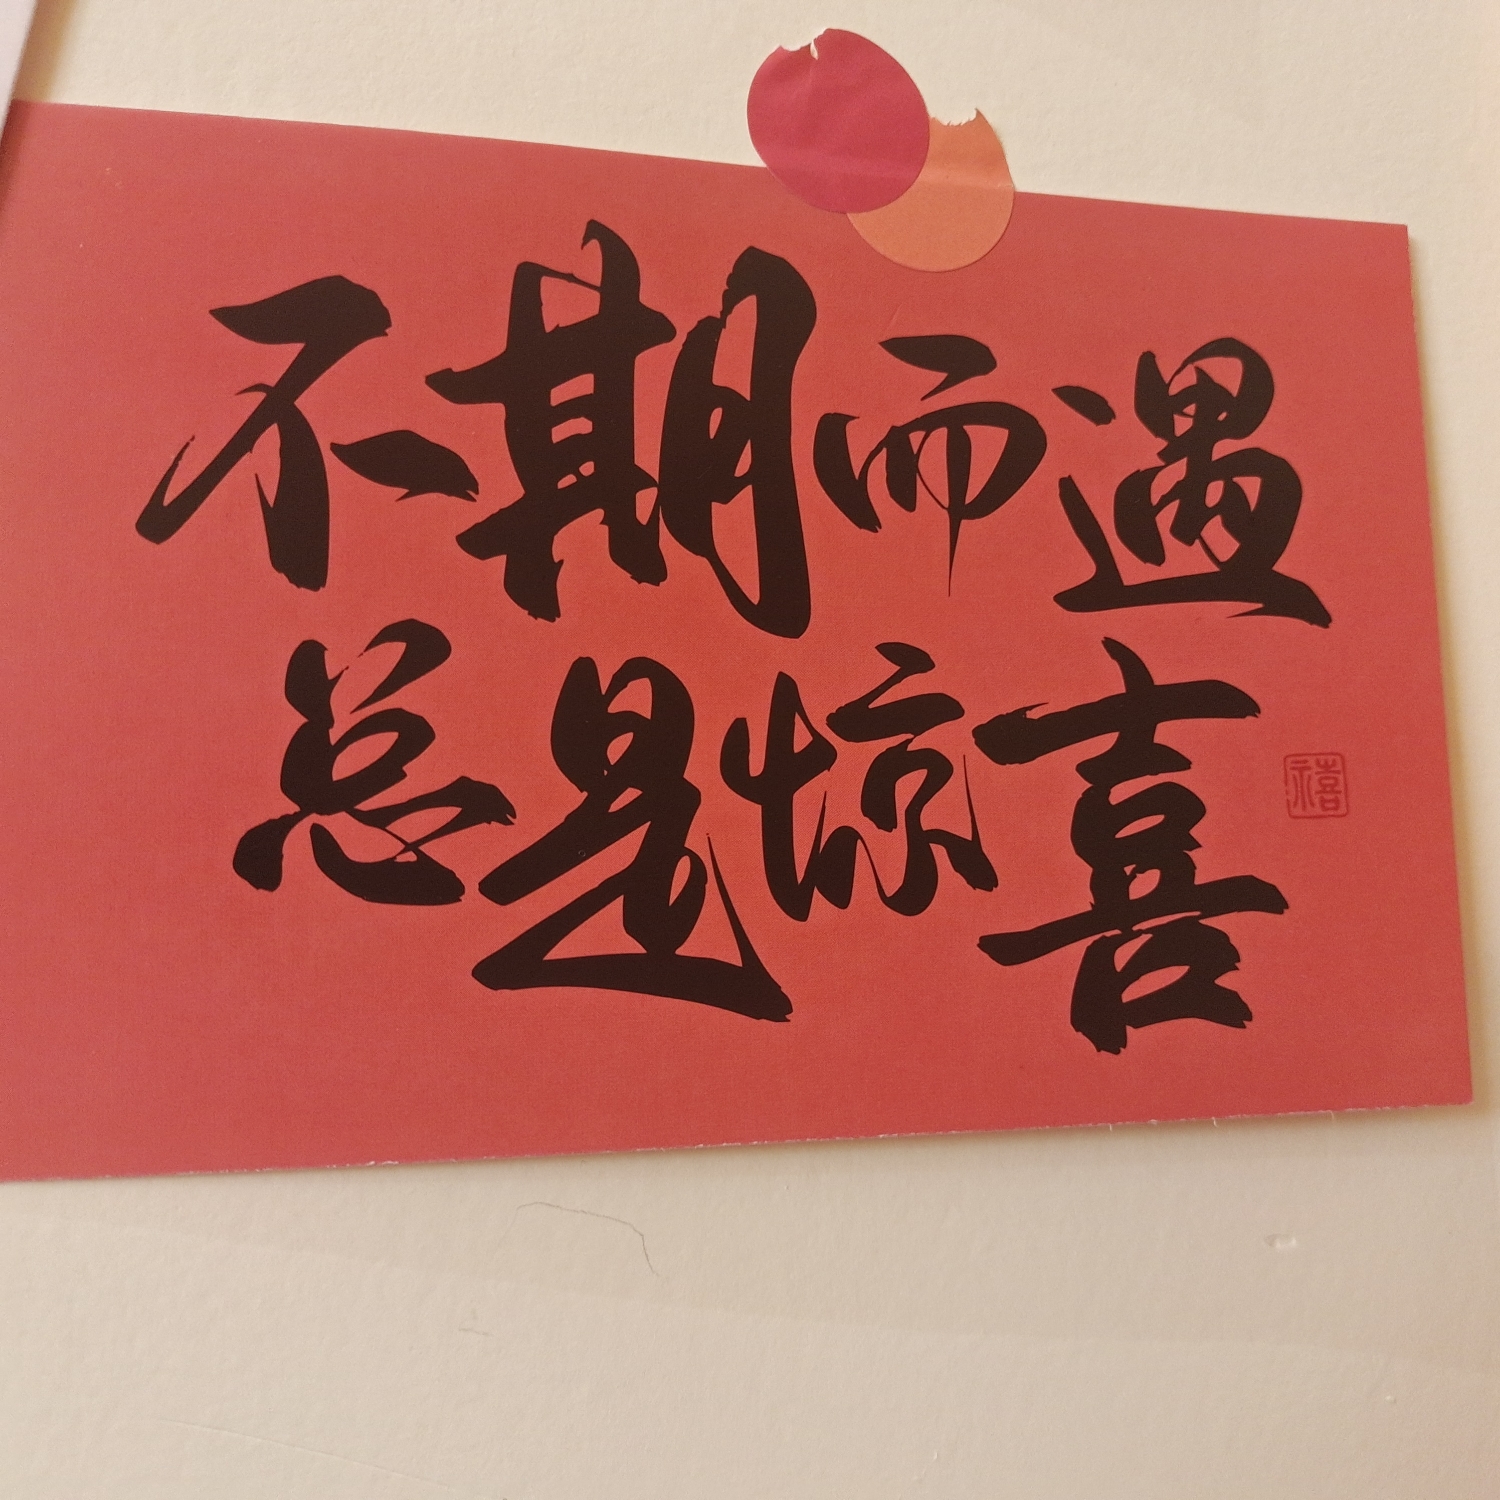 不期而遇
总是惊喜
禧